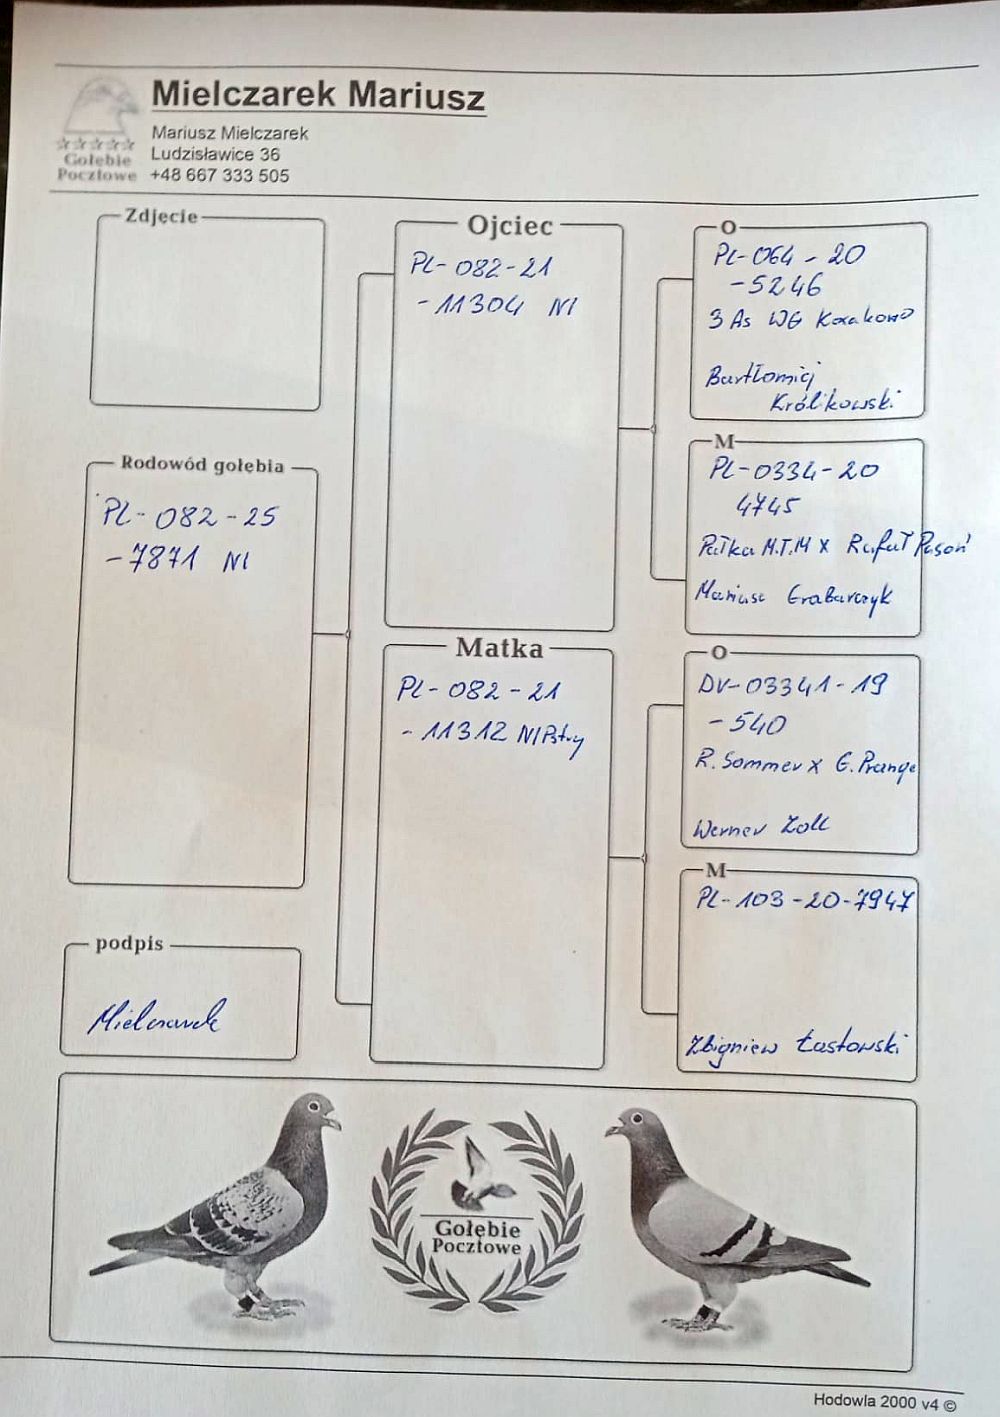 Mielczarek Mariusz
Mariusz Mielczarek
Ludzisławice 36
+48 667 333 505
Gołębie
Pocztowe
Zdjęcie
Rodowód gołębia
PL-082-25
-7871 NI
podpis
Mielczarek
Ojciec
PL-082-21
-11304 NI
Matka
PL-082-21
-11312 NIPstry
O
PL-064-20
-5246
3 As WG Koxakowo
Bartłomiej
Królikowski
M
PL-0334-20
4745
Pałka M.T.M x Rafał Pasoń
Mariusz Grabarczyk
O
DV-03341-19
-540
R. Sommer x G. Prange
Werner Zoll
M
PL-103-20-7947
Zbigniew Łastowski
Gołębie
Pocztowe
Hodowla 2000 v4 ©